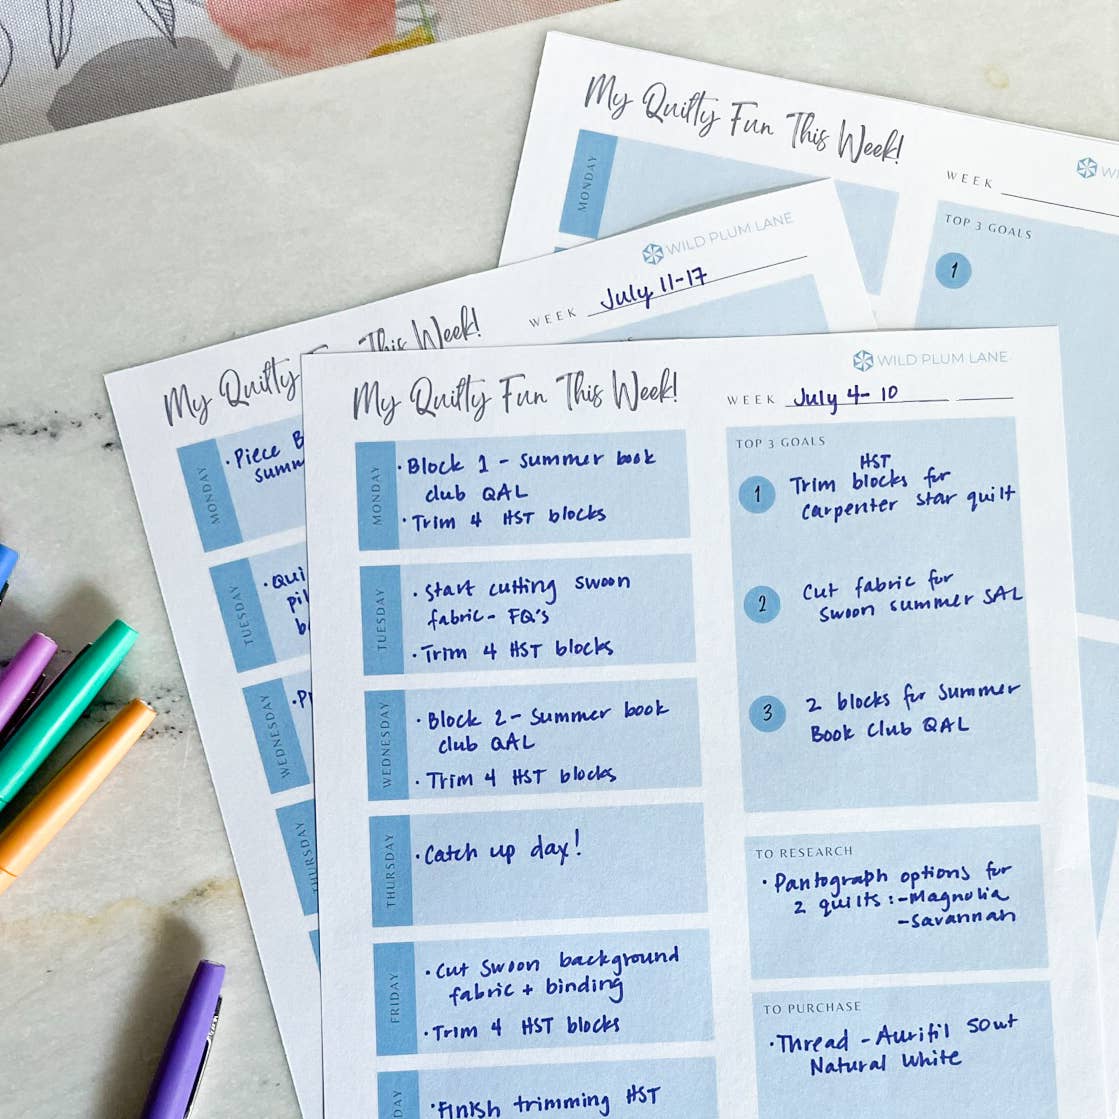 My Quilty Fun This Week!
WEEK
MONDAY
TOP 3 GOALS
1
WILD PLUM LANE
WEEK July 11-17
My Quilty This Week!
MONDAY
· Piece
summ
TUESDAY
WEDNESDAY
THURSDAY
WILD PLUM LANE
My Quilty Fun This Week!
WEEK July 4-10
MONDAY
· Block 1 - summer book
club QAL
· Trim 4 HST blocks
TUESDAY
· Start cutting swoon
fabric - FQ's
· Trim 4 HST blocks
WEDNESDAY
· Block 2 - summer book
club QAL
· Trim 4 HST blocks
THURSDAY
· Catch up day!
FRIDAY
· Cut swoon background
fabric + binding
· Trim 4 HST blocks
· Finish trimming HST
TOP 3 GOALS
1
HST
Trim blocks for
carpenter star quilt
2
Cut fabric for
swoon summer SAL
3
2 blocks for Summer
Book Club QAL
TO RESEARCH
· Pantograph options for
2 quilts: - Magnolia
- Savannah
TO PURCHASE
· Thread - Aurifil 50wt
Natural White